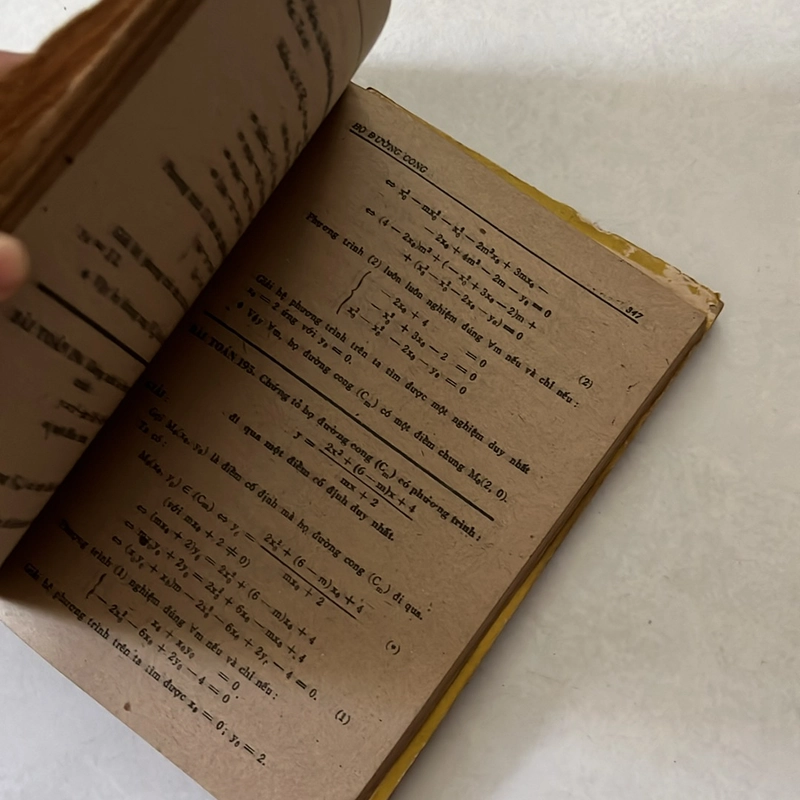 HỌ ĐƯỜNG CONG
347
⇔ x₀³ − mx₀² − x₀² − 2m²x₀ + 3mx₀ −
− 2x₀ + 4m² − 2m − y₀ = 0
⇔ (4 − 2x₀)m² + (−x₀² + 3x₀ − 2)m +
+ (x₀³ − x₀² − 2x₀ − y₀) = 0 (2)
Phương trình (2) luôn luôn nghiệm đúng ∀m nếu và chỉ nếu :
− 2x₀ + 4 = 0
− x₀² + 3x₀ − 2 = 0
x₀³ − x₀² − 2x₀ − y₀ = 0
Giải hệ phương trình trên ta tìm được một nghiệm duy nhất
x₀ = 2 ứng với y₀ = 0.
• Vậy ∀m, họ đường cong (Cₘ) có một điểm chung M₀(2, 0).
BÀI TOÁN 193. Chứng tỏ họ đường cong (Cₘ) có phương trình :
y = 2x² + (6 − m)x + 4 / mx + 2
đi qua một điểm cố định duy nhất.
GIẢI.
Gọi M₀(x₀, y₀) là điểm cố định mà họ đường cong (Cₘ) đi qua.
Ta có :
M₀(x₀, y₀) ∈ (Cm) ⇔ y₀ = 2x₀² + (6 − m)x₀ + 4 / mx₀ + 2 (•)
(với mx₀ + 2 ≠ 0)
⇔ (mx₀ + 2)y₀ = 2x₀² + (6 − m)x₀ + 4
⇔ mx₀y₀ + 2y₀ = 2x₀² + 6x₀ − mx₀ + 4
⇔ (x₀y₀ + x₀)m − 2x₀² − 6x₀ + 2y₀ − 4 = 0. (1)
Phương trình (1) nghiệm đúng ∀m nếu và chỉ nếu :
x₀ + x₀y₀ = 0
− 2x₀² − 6x₀ + 2y₀ − 4 = 0
Giải hệ phương trình trên ta tìm được x₀ = 0; y₀ = 2.